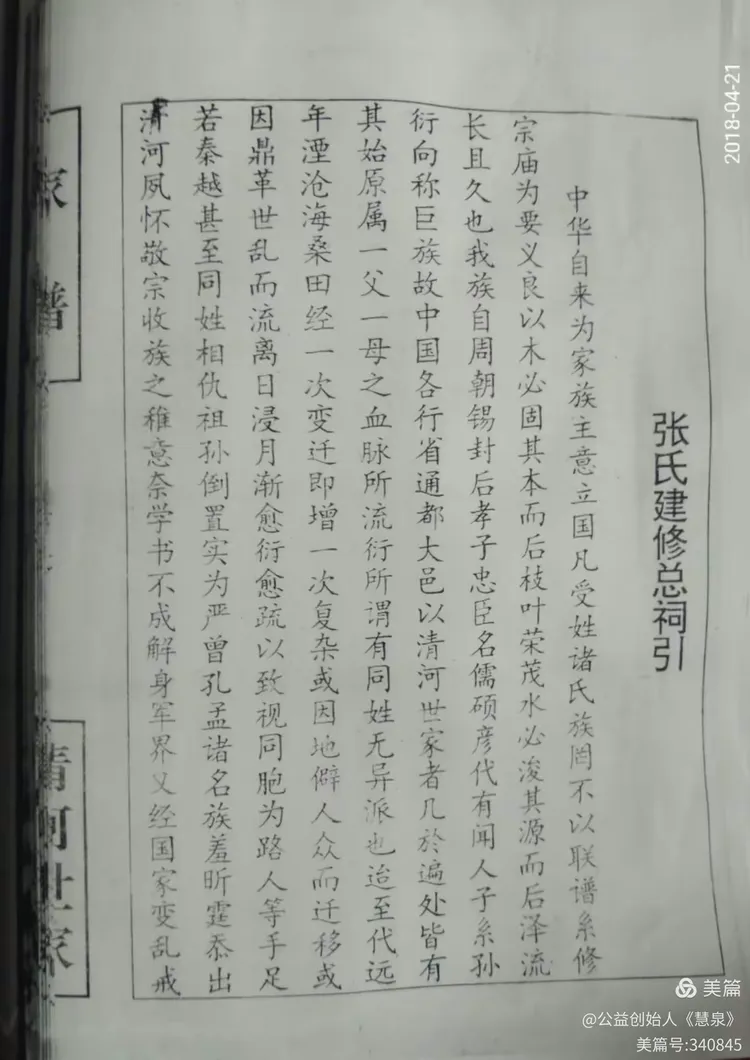 张氏建修总祠引
中华自来为家族主意立国凡受姓诸氏族罔不以联谱系修
宗庙为要义良以木必固其本而后枝叶荣茂水必浚其源而后泽流
长且久也我族自周朝锡封后孝子忠臣名儒硕彦代有闻人子系孙
衍向称巨族故中国各行省通都大邑以清河世家者几於遍处皆有
其始原属一父一母之血脉所流衍所谓有同姓无异派也迨至代远
年湮沧海桑田经一次变迁即增一次复杂或因地僻人众而迁移或
因鼎革世乱而流离日浸月渐愈衍愈疏以致视同胞为路人等手足
若秦越甚至同姓相仇祖孙倒置实为严曾孔孟诸名族羞昕霆忝出
清河夙怀敬宗收族之稚意奈学书不成解身军界又经国家变乱戒
家谱
清河世家
2018-04-21
美篇
@公益创始人《慧泉》
美篇号:340845